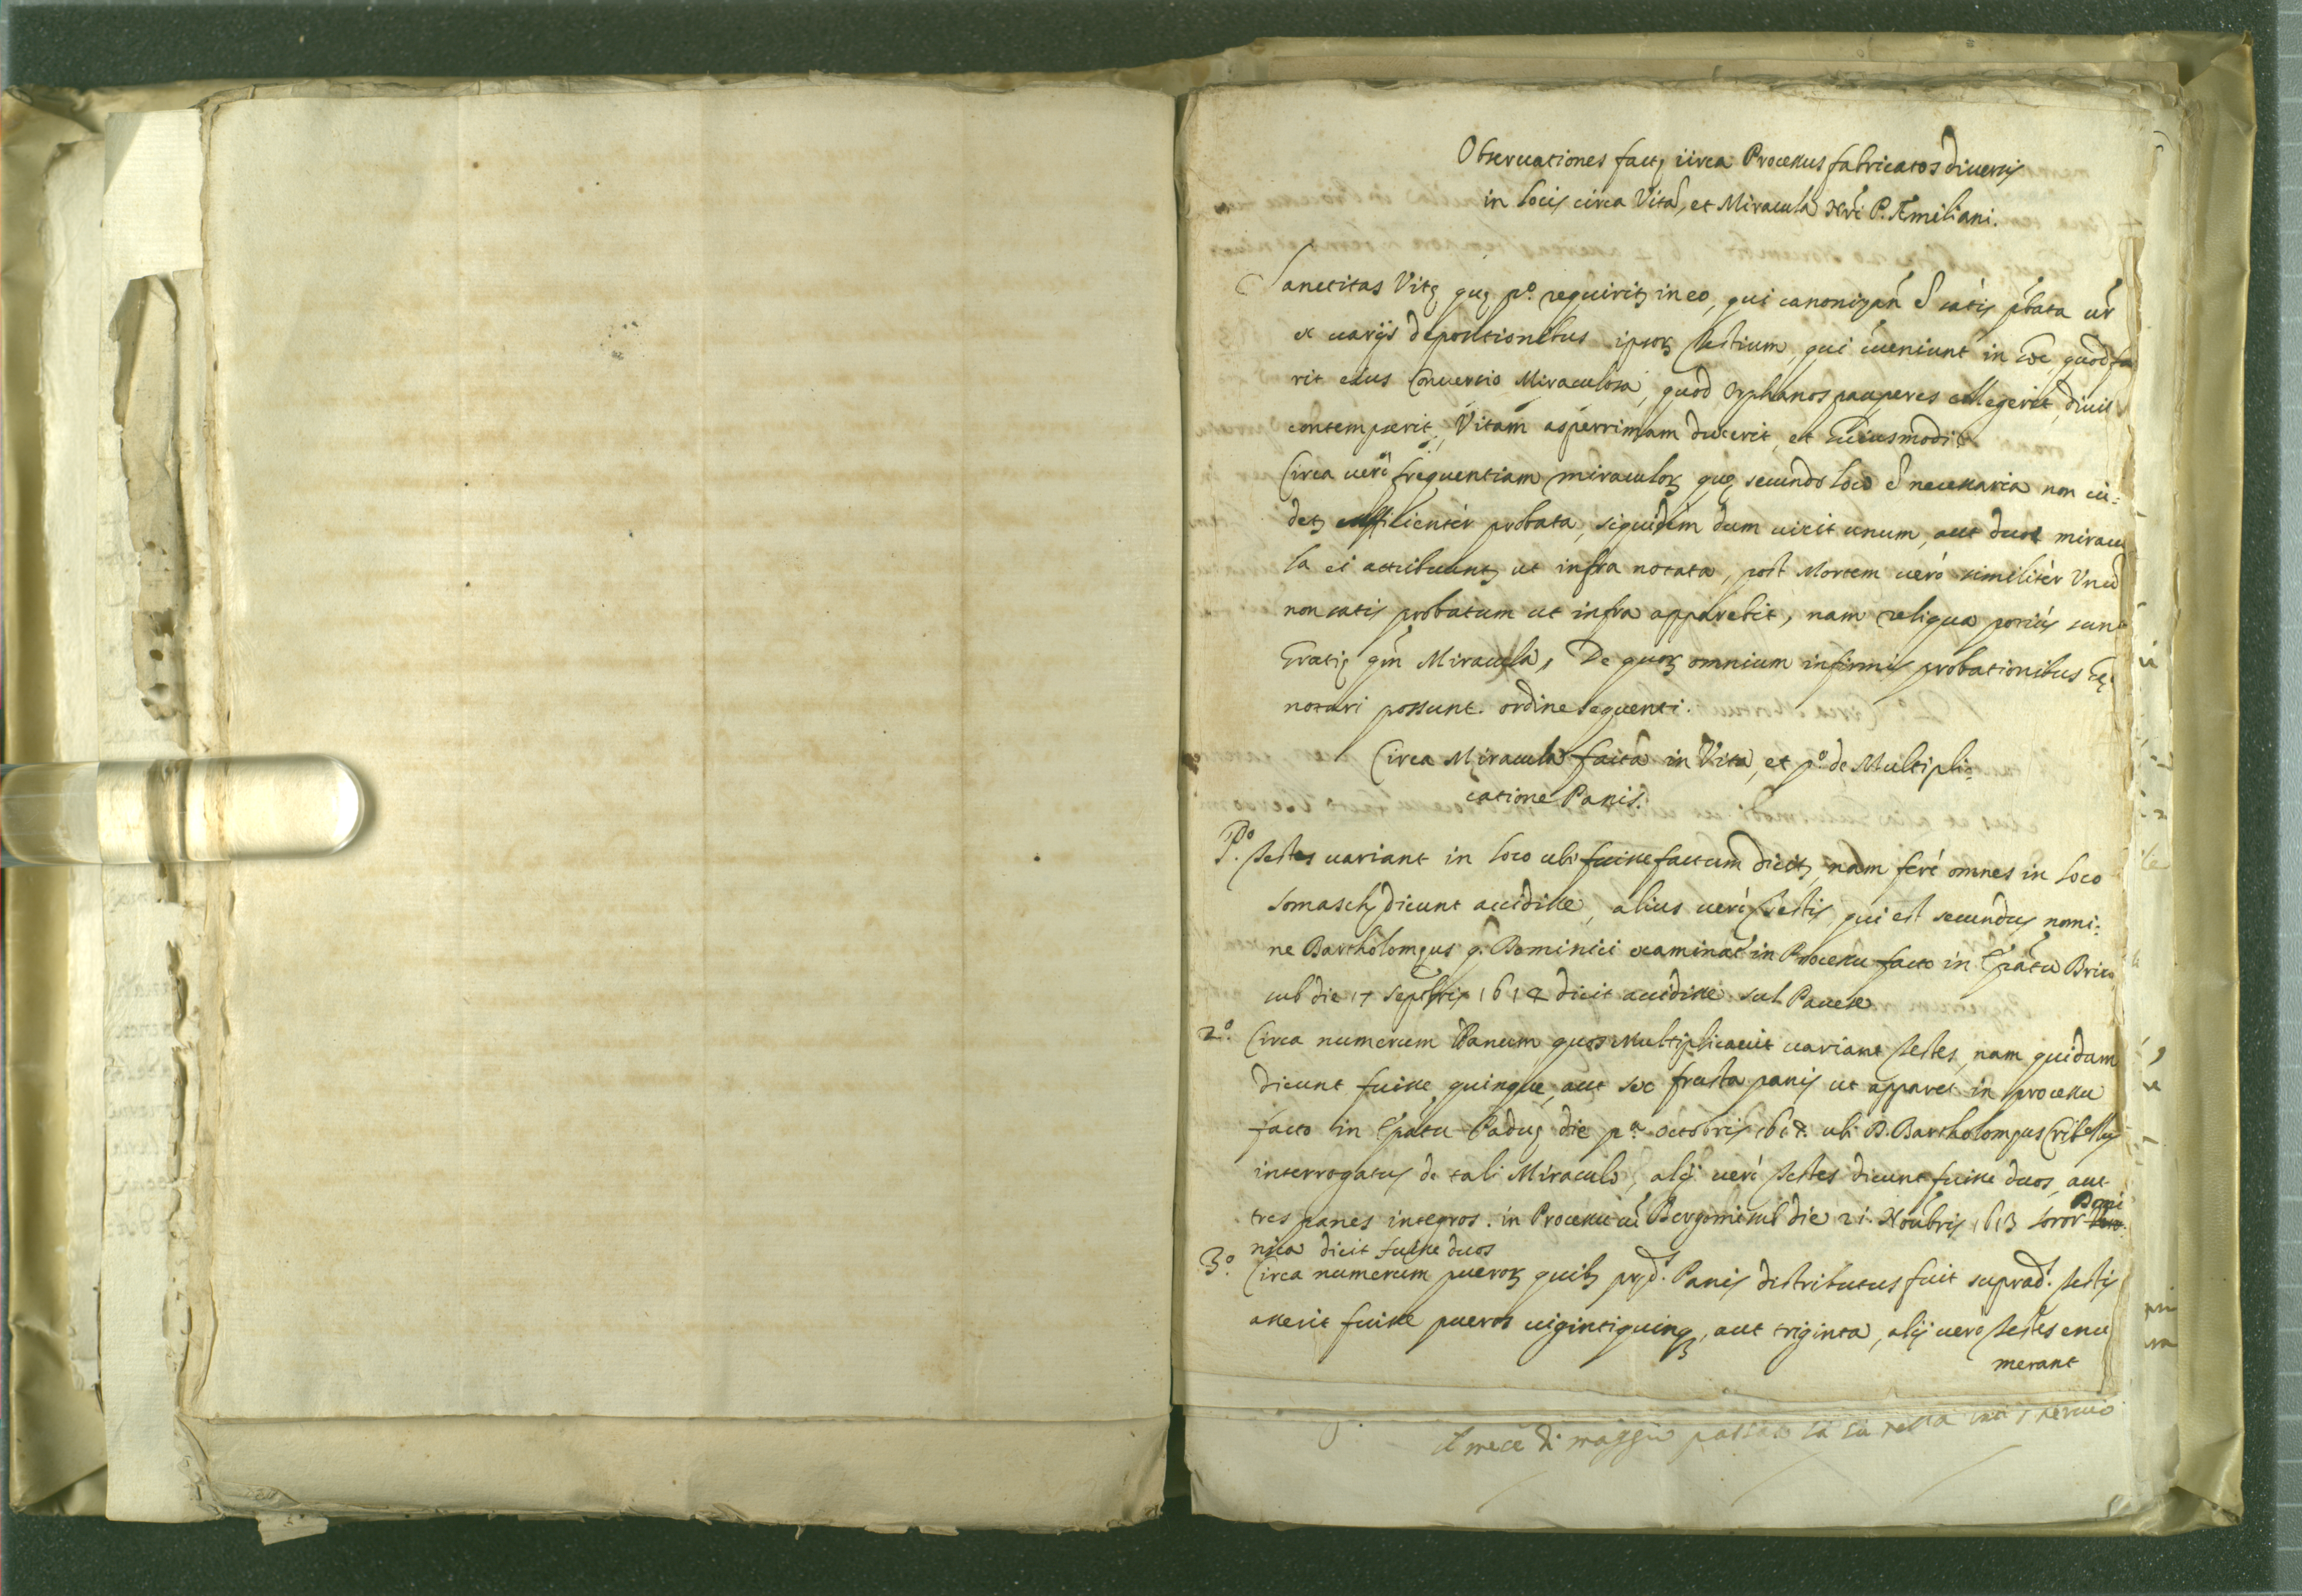 Obseruationes factę circa Processus fabricatos diuersis
in locis circa Vitã, et Miracula Nrĩ P. Æmiliani.
Sanctitas Vitę quę pº. requiritʒ in eo, qui canonizań ẽ satis pbata ur̃
ex uarijs depositionibus ipsoꝝ testium, qui cueniunt in hoc, quod fue
rit eius Conuersio Miraculosa, quod Orphanos pauperes collegerit, diuit
contempserit, Vitam asperrimam duxerit, et huiusmodi.
Circa uerò frequentiam miraculoꝝ quę secundo loco ẽ necessaria non ui:
detʒ sufficientèr probata, siquidem dum uixit unum, aut duos miracu
la ei attribuuntʒ ut infra notata, post Mortem uerò similitèr Vnũ
non satis probatum ut infra apparebit, nam reliqua potiùs sunt
Gratię qm̃ Miracula, De quoꝝ omnium infirmis probationibus hęc
notari possunt ordine sequenti.
Circa Miracula facta in Vita, et pº. de Multipli:
catione Panis.
Pº. Testes uariant in loco ubi fuisse factum dicitʒ, nam ferè omnes in loco
Somaschę dicunt accidisse, alius uerò testis, qui est secundus nomi:
ne Bartholomęus q. Dominici examinat̃ in Processu facto in Ep̃atu Brixię
sub die 17 Septẽbris 1614 dicit accidisse sul Pauese
2º. Circa numerum Panum quos multiplicauit uariant testes, nam quidam
dicunt fuisse quinque, aut sex frusta panis ut apparet in processu
facto in Ep̃atu Paduę die pª. Octobris 1617. ubi D. Bartholomęus Cribellus
interrogatus de tali Miraculo, alij uerò testes dicunt fuisse duos, aut
tres panes integros. in Processu Bergomi sub die 21. Nouẽbris 1613 soror Domi
nica dicit fuisse duos
3º. Circa numerum pueroꝝ quibʒ pręd. Panis distributus fuit suprad. testis
asserit fuisse pueros uigintiquinqʒ, aut triginta, alij uerò testes enu
merant
il mese di maggio passato la